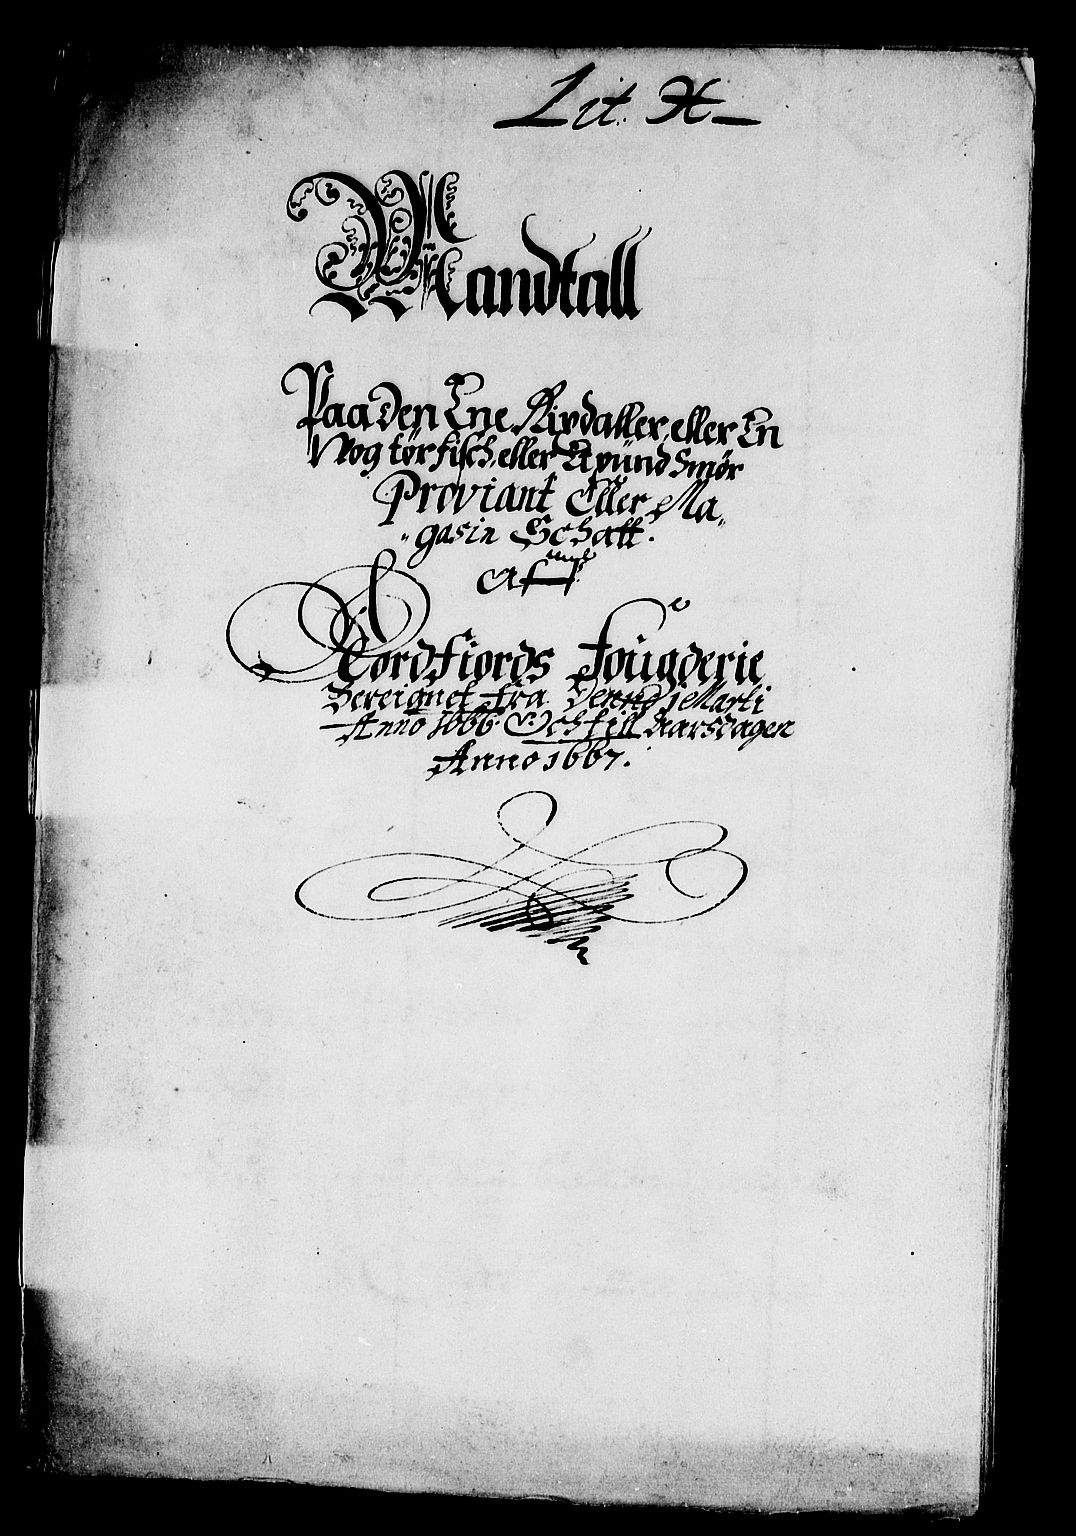 Lit. H
Mandtall
Paa Den Ene Rixdaller, eller En
Wog tør fisch, eller Et pund Smør
Proviant Eller Ma„
„gasin Schatt.
Aff
Nordfiords Fougderie
Bereignet Fra Dennd 1 Marti
Anno 1666 Och till Aarsdagen
Anno 1667.